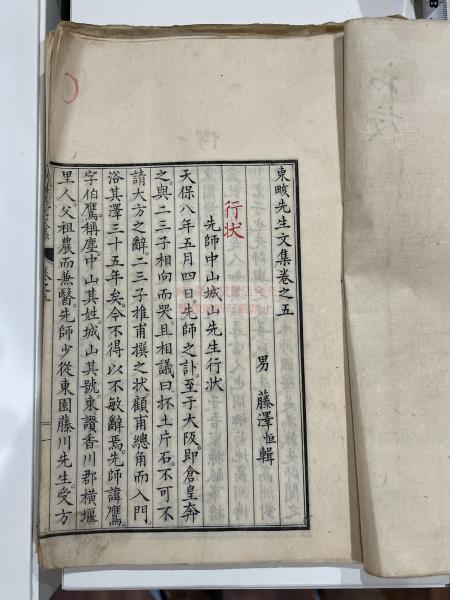 東畡先生文集卷之五
男 藤澤恒輯
行状
先師中山城山先生行狀
天保八年五月四日先師之訃至于大阪即倉皇奔
之與二三子相向而哭且相議曰抔土片石不可不
請大方之辭二三子推甫撰之状顧甫總角而入門
浴其澤三十五年矣今不得以不敏辭焉先師諱鷹
字伯鷹稱塵中山其姓城山其號東讚香川郡橫堰
里人父祖農而兼醫先師少從東園藤川先生受方